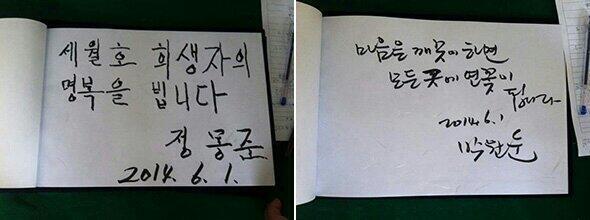 세월호 희생자의
명복을 빕니다
정몽준
2014. 6. 1.
마음을 깨끗이 하면
모든 곳에 연꽃이
핍니다
2014. 6. 1
박원순